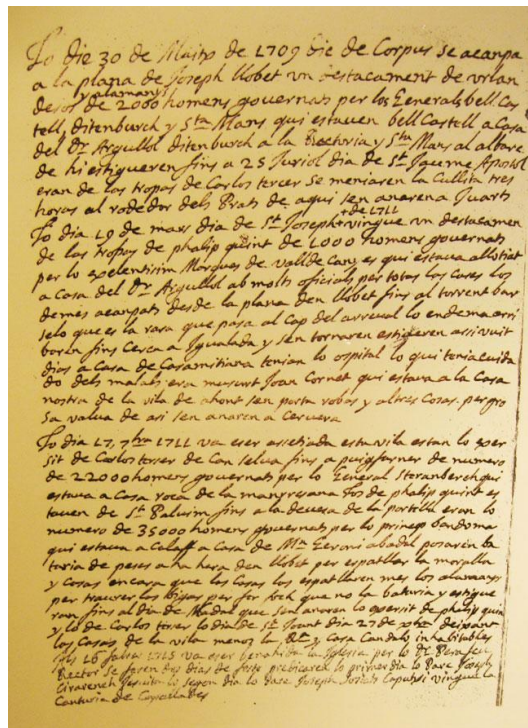 Lo die 30 de Maitx de 1709 die de Corpus se acanpa
a la plana de Joseph Llobet vn destacament de vrlan
y alamanys
desos de 2000 homens governats per los Generals bell Cas
tell, Ditenburch y Sta Mans qui estauen bell Castell a Casa
del Dr Argullol ditenburch a la Rectoria y Sta Mars al
de hi estigueren fins a 25 Juriol dia de St Jaume Apostol
eran de las tropas de Carlos tercer Se meniaren la Cullita tres
horas al rodedor dels Prats de aqui sen anaren a Juarts
Lo dia 19 de mars dia de St Joseph + de 1711 vingue vn destacamen
de las tropas de phalip quint de 1000 homens governats
per lo exelentisim Marques de vall de Cans es qui estaua allotiat
a Casa del Dr Argullol ab molts officials per totas las Cases los
demes acanpats desde la plana den Llobet fins al torrent bar
selo que es la rara que pasa al Cap del arreual lo endema arri
baren fins Cerca a Igualada y sen tornaren estigeren assi vuit
dias a Casa de Casamitiana tenian lo ospital lo qui tenia cuida
do dels malats era musurt Joan Cornet qui estaua a la Casa
nostra de la vila de ahont sen porta robas y altres Cosas. per gro
sa valua de asi sen anaren a Ceruera
Lo dia 17, 7bra 1711 va eser assetiada esta vila estan lo exer
sit de Carlos terser de Can selua fins a puigfarner de numero
de 22000 homens governats per lo General Staranberch qui
estaua a Casa roca de la manresana los de phalip quint es
tauen de St Paluim fins a la deuesa de la portella eran lo
numero de 35000 homens governats per lo prinsep bandoma
qui estaua a Calaff a Casa de Mn Geroni abadal posaren ba
taria de peses a ha hera den Llobet per espatllar la moralla
y Cosas encara que las Casas las espatllaren mes los alamanys
per traurer las bigas per for foch que no la bataria y estigue
ran fins al dia de Nadal que sen anaren lo exersit de phalip quin
y lo de Carlos terser lo dia de St Joant dia 27 de xbra deixant
las Casas de la vila menos la Rta y Casa Candalo inhabitables
16 1715 va eser benahida la Iglesia per lo Dr
Rector se faren dos dias de festa predicaren lo primer dia lo Pare Joseph
Jesuita lo segon dia lo Pare Joseph Caputxi vingue la
Canturia de